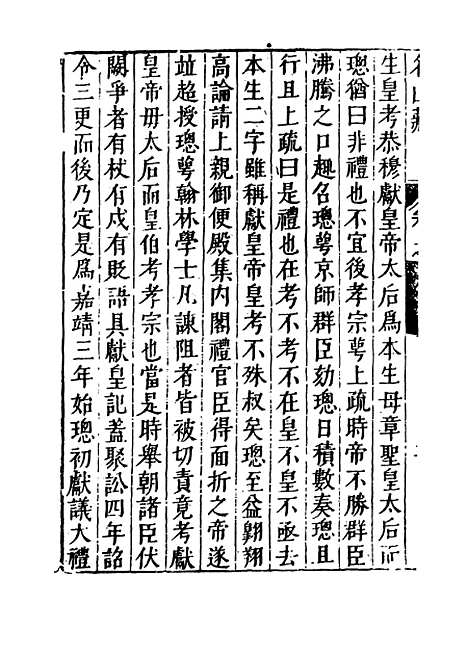 生皇考恭穆獻皇帝太后爲本生母章聖皇太后而
璁猶曰非禮也不宜後孝宗萼上疏時帝不勝群臣
沸騰之口趣召璁萼京師群臣劾璁日積數奏璁且
行且上疏曰是禮也在考不考不在皇不皇不亟去
本生二字雖稱獻皇帝皇考不殊叔矣璁至益翺翔
高論請上親御便殿集内閣禮官臣得面折之帝遂
竝超授璁萼翰林學士凡諫阻者皆被切責竟考獻
皇帝毋太后而皇伯考孝宗也當是時舉朝諸臣伏
闕爭者有杖有戍有貶語具獻皇記蓋聚訟四年詔
令三更而後乃定是爲嘉靖三年始璁初獻議大禮